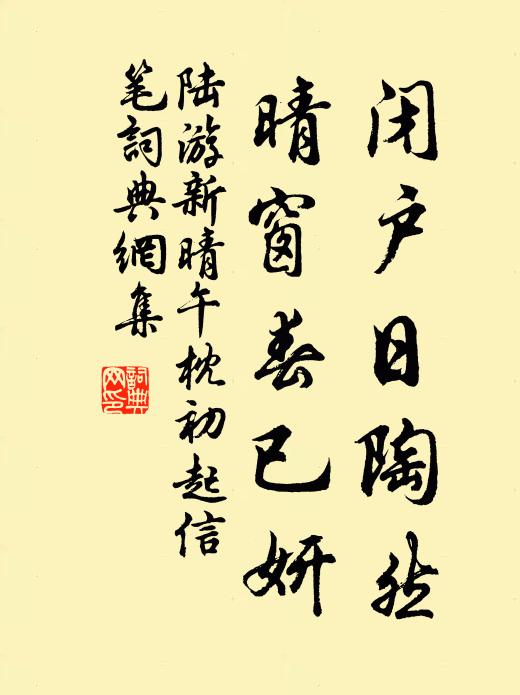 闭户日陶然
晴窗春已妍
陆游新晴午枕初起信
笔詞典網集
詞典
网印